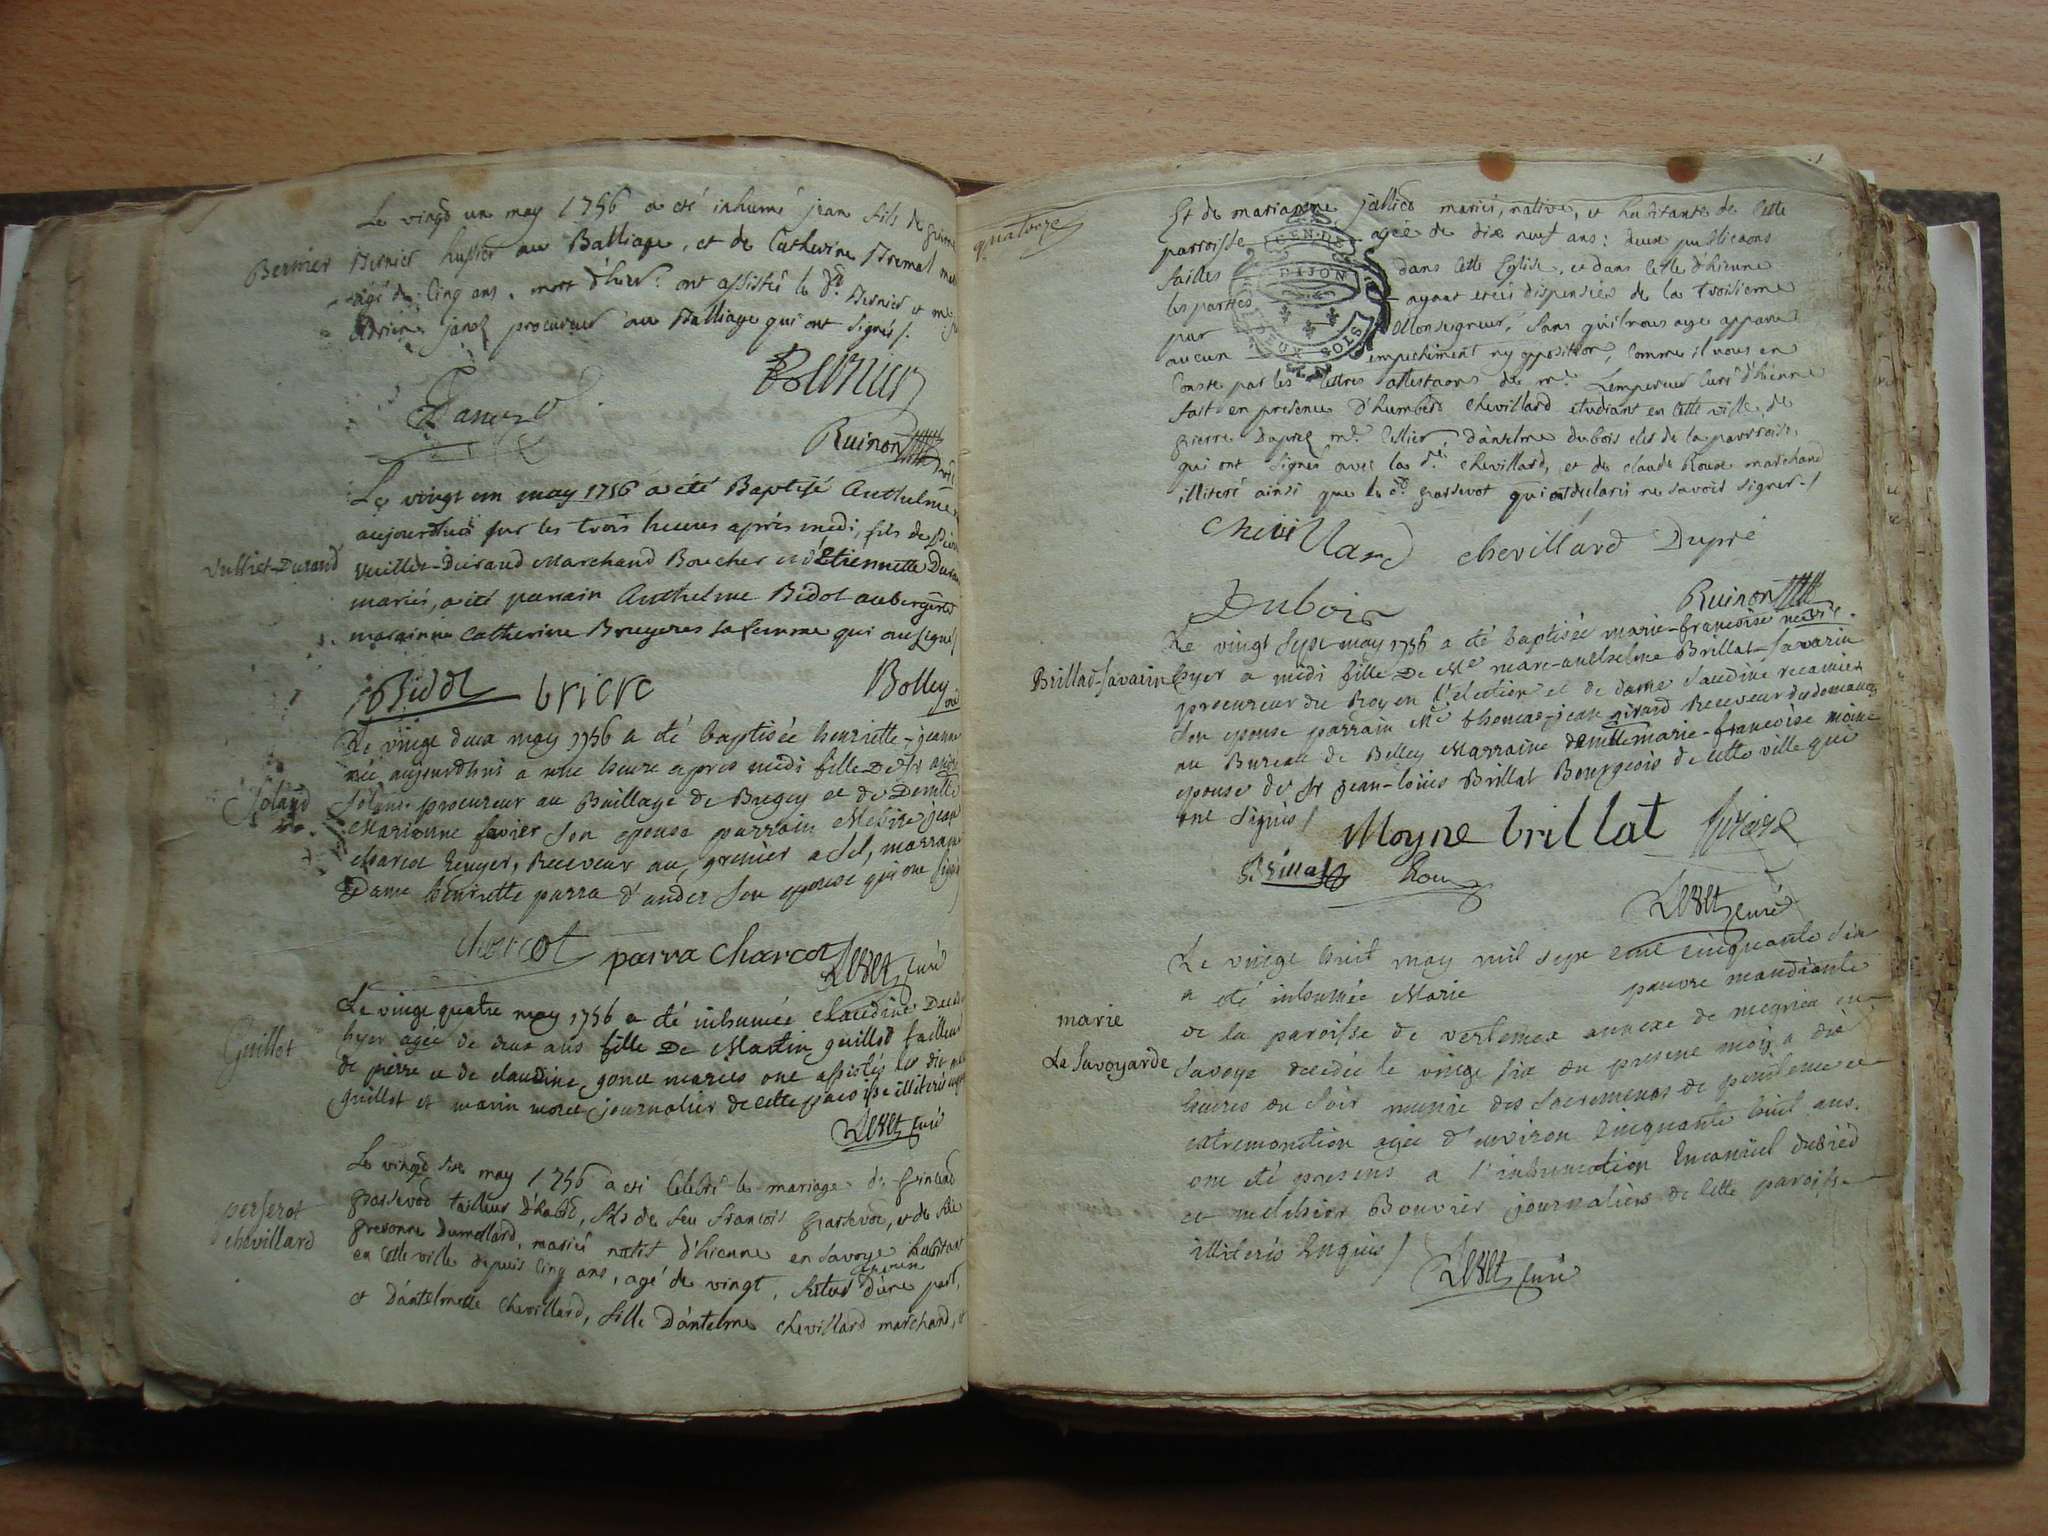 Le vingt un may 1756 a eté inhumé jean fils de pierre
Bernier
Bernier huissier au Balliage, et de Catherine
agé de cinq ans, mort d'hier. ont assistés le Sr. Bernier et me.
janez procureur au Balliage qui ont signés /.
Bernier
Janez
Ruinon
Le vingt un may 1756 a été Baptisé Anthelme
aujourdhui sur les trois heures après midi, fils de
Vulliet-Durand
Vuillet-Durand Marchand Boucher et d'Etiennette
mariés, a été parrain Anthelme Bidot aubergiste
marainne Catherine Bruyeres sa femme qui ont signé /
Bidot briere
Bolley
Le vingt deux may 1756 a été baptisée henriette-jeanne
née aujourdhui a une heure apres midi fille De Sr
Joland
procureur au Bailliage de Bugey et de Demlle
Marianne favier son epouse parrain Messire jean
charcot Ecuyer, Receveur au grenier a sel, marraine
Dame henriette parra d'andert son epouse qui ont signé
charcot parra charcot
Levet curé
Le vingt quatre may 1756 a été inhumée claudine
Guillot
hyer agée de deux ans fille De Martin guillot tailleur
de pierre et de claudine gonet mariés ont assistés les dit
guillot et marin moret journalier de cette paroisse illiterés
Levet curé
Le vingt six may 1756 a eté celebré le mariage de
perserot
chevillard
tailleur d'habit, fils de feu francois et de
dumollard, mariés natif d'hienne en Savoye habitant
en cette ville depuis cinq ans, agé de vingt, d'une part,
et d'antelmette chevillard, fille d'antelme chevillard marchand, et
quatorze
Et de marianne jallier mariés, native, et habitante de cette
parroisse agée de dix neuf ans: deux publicaons
GEN. DE
DIJON
DEUX SOLS
faites dans cette Eglise, et dans celle d'hienne
les parties ayant etées dispensées de la troisieme
par Monseigneur, sans qu'il nous aye apparu
aucun empechement ny opposition, comme il nous en
conste par les lettres attestaons de mr. Lempereur curé d'hienne
fait en presence d'humbert chevillard etudiant en cette ville, de
pierre Dupré md. d'anselme dubois clers de la parroisse,
qui ont signés avec la de. chevillard, et de claude Roux marchand
illiteré ainsi que le qui ont declarés ne savoir signer. /
chevillard chevillard Dupré
Dubois
Ruinon
Le vingt sept may 1756 a été baptisée marie-francoise née
Brillat-Savarin
hyer a midi fille De Me marc-anthelme Brillat-Savarin
procureur du Roy en l'election et de dame Claudine recamier
son epouse parrain Me thomas-jean girard Receveur des domaines
au Bureau de Belley Marraine demlle marie-francoise moine
epouse de Sr jean-louis Brillat Bourgeois de cette ville qui
ont signés /
Moyne brillat girard
Brillat
Levet curé
Le vingt huit may mil sept cent cinquante six
a été inhumée Marie pauvre mandiante
marie
La Savoyarde
de la paroisse de annexe de en
Savoye decedée le vingt six du present mois a dix
heures du soir munie des sacremens de penitence et
extremonction agée d'environ cinquante huit ans.
ont été presens a l'inhumation Emanuel
et melchior Bouvier journaliers de cette paroisse
illiterés Enquis /
Levet curé